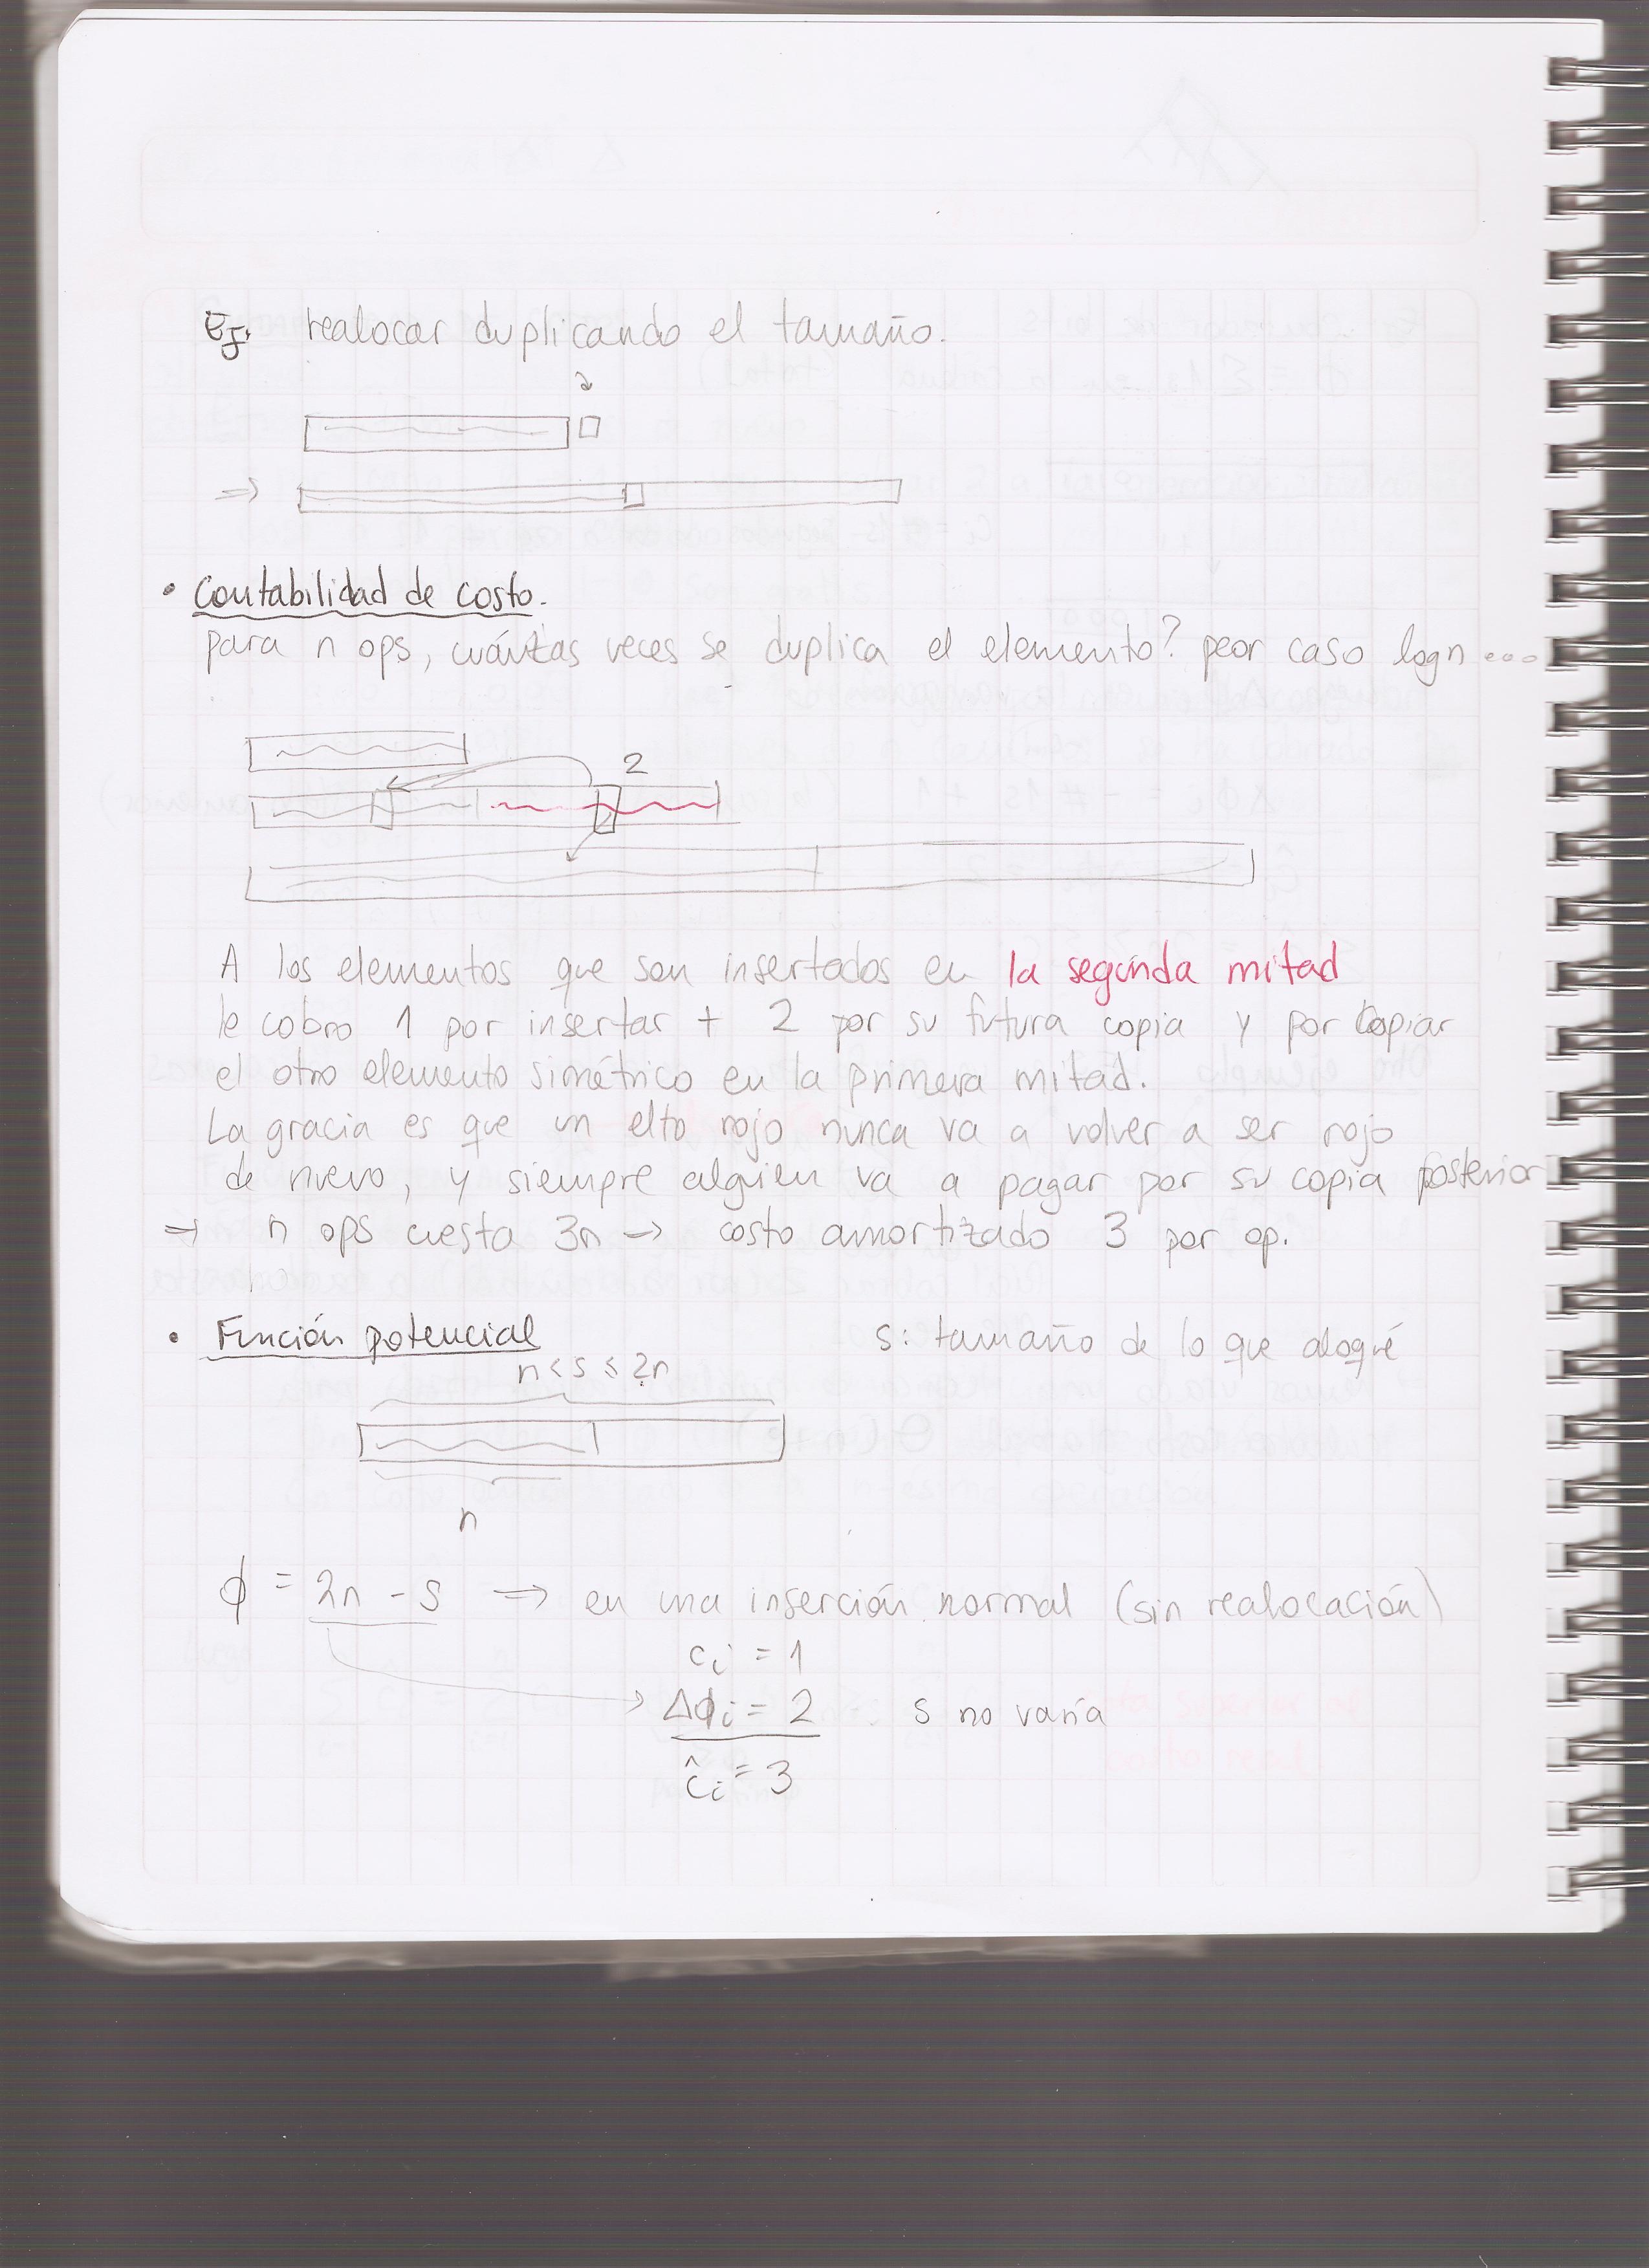 Ej. realocar duplicando el tamaño.
⇒
• Contabilidad de costo.
para n ops, cuántas veces se duplica el elemento? peor caso logn ...
2
A los elementos que son insertados en la segunda mitad
le cobro 1 por insertar + 2 por su futura copia y por copiar
el otro elemento simétrico en la primera mitad.
La gracia es que un elto rojo nunca va a volver a ser rojo
de nuevo, y siempre alguien va a pagar por su copia posterior
⇒ n ops cuesta 3n → costo amortizado 3 por op.
• Función potencial s: tamaño de lo que alogué
n < s ≤ 2n
n
ϕ = 2n - s ⇒ en una inserción normal (sin realocación)
ci = 1
Δϕi = 2 s no varía
ĉi = 3